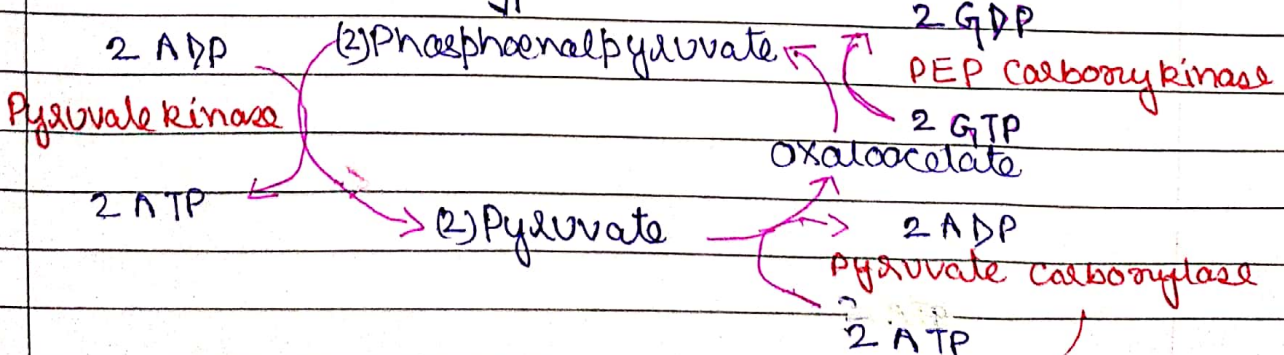 2 GDP
2 ADP (2)Phosphoenolpyruvate
PEP Carboxykinase
Pyruvate kinase
2 GTP
Oxaloacetate
2 ATP
(2)Pyruvate 2 ADP
Pyruvate Carboxylase
2 ATP